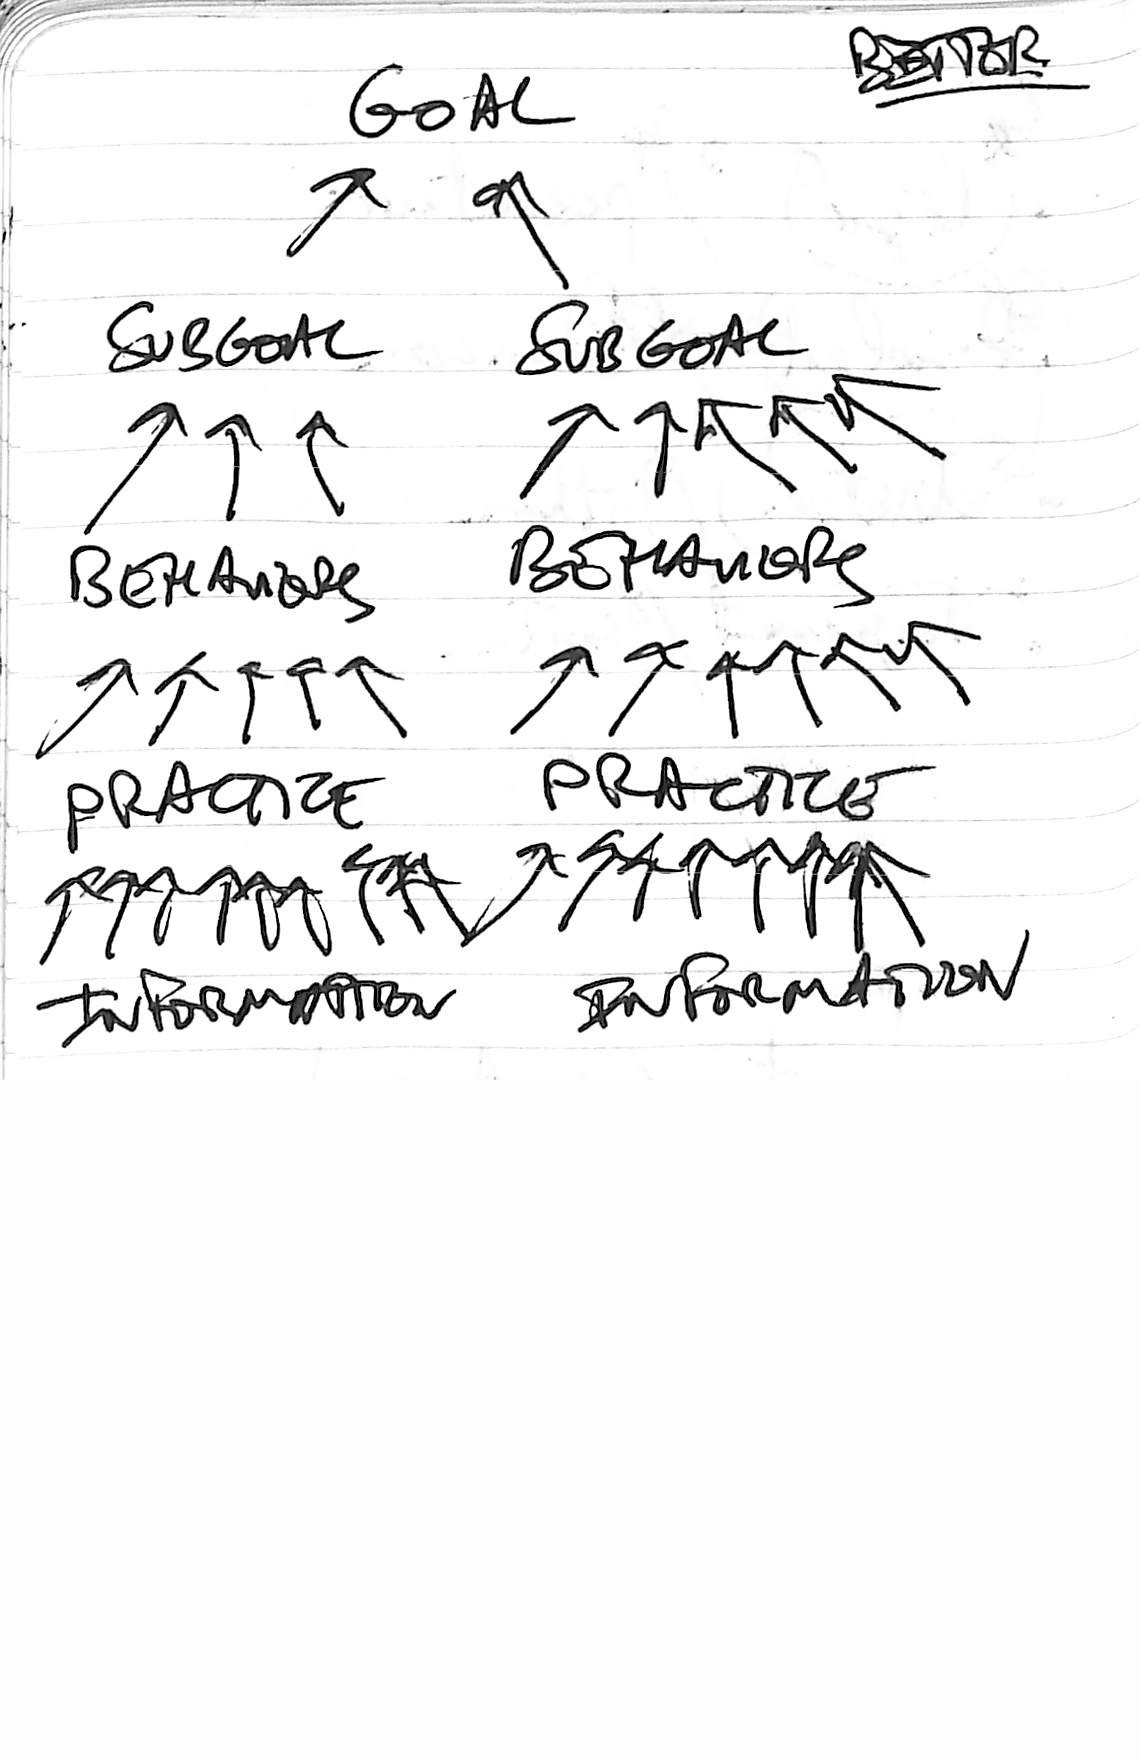 GOAL
SUBGOAL SUBGOAL
BEHAVIORS BEHAVIORS
PRACTICE PRACTICE
INFORMATION INFORMATION